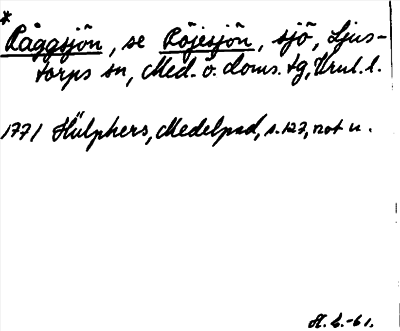 *
Råggsjön, se Röjesjön, sjö, Ljus-
torps sn, Med. ö. doms. tg, Vrnl. l.
1771 Hülphers, Medelpad, s. 127, not u.
H. L. -61.